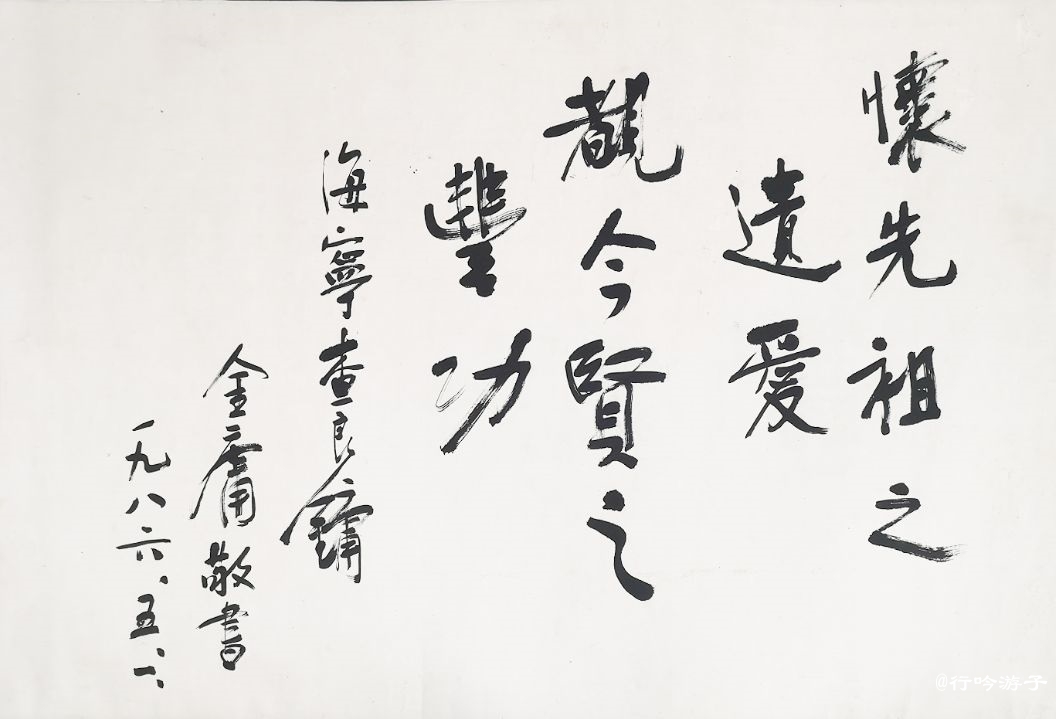 懷先祖之
遺愛
覩今賢之
豐功
海寧查良鏞
金庸敬書
一九八六、五、一、
@行吟游子